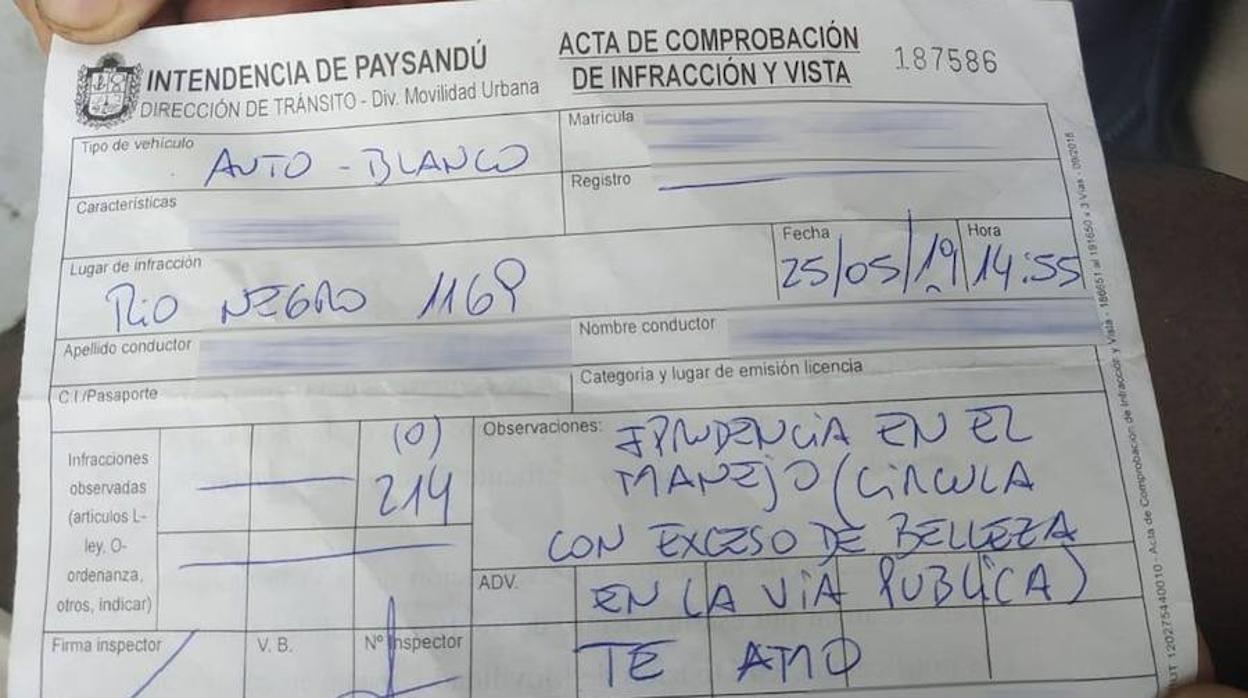 INTENDENCIA DE PAYSANDÚ
DIRECCIÓN DE TRÁNSITO - Div. Movilidad Urbana
ACTA DE COMPROBACIÓN
DE INFRACCIÓN Y VISTA
187586
Tipo de vehículo
AUTO - BLANCO
Matrícula
Características
Registro
Lugar de infracción
RIO NEGRO 1169
Fecha
25/05/19
Hora
14:55
Apellido conductor
Nombre conductor
C.I./Pasaporte
Categoria y lugar de emisión licencia
Infracciones
observadas
(articulos L-
ley, O-
ordenanza,
otros, indicar)
(O)
214
Observaciones:
IPRUDENCIA EN EL
MANEJO (CIRCULA
CON EXCESO DE BELLEZA
EN LA VIA PUBLICA)
TE AMO
ADV.
Firma inspector
V. B.
Nº Inspector
120275440010 - Acta de Comprobación de Infracción y Vista - 186651 al 191650 x 3 Vías - 09/2018